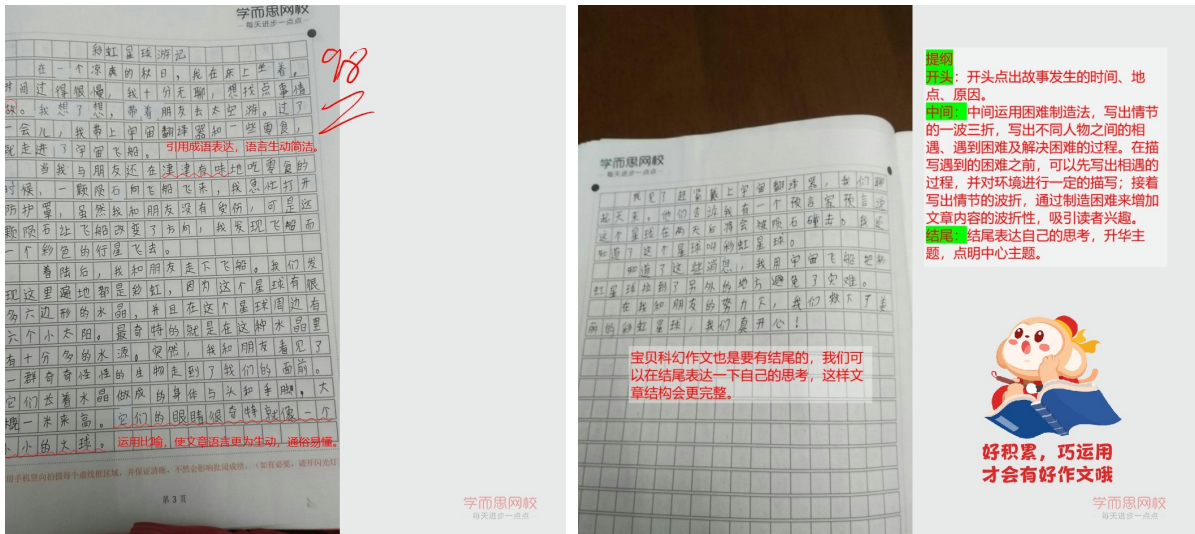 学而思网校
每天进步一点点
彩虹星球游记
在一个凉爽的秋日，我在床上坐着。
时间过得很慢，我十分无聊，想找点事情
做。我想了想，带着朋友去太空游。过了
一会儿，我带上宇宙翻译器和一些零食，
就走进了宇宙飞船。
引用成语表达，语言生动简洁。
当我与朋友还在津津有味地吃零食的
时候，一颗陨石向飞船飞来，我急忙打开
防护罩，虽然我和朋友没有受伤，可是这
颗陨石让飞船改变了方向，我发现飞船向
一个彩色的行星飞去。
着陆后，我和朋友走下飞船。我们发
现这里遍地都是彩虹，因为这个星球有很
多六边形的水晶，并且在这个星球周边有
六个小太阳。最奇特的就是在这种水晶里
有十分多的水源。突然，我和朋友看见了
一群奇奇怪怪的生物走到了我们的面前。
它们长着水晶做成的身体与头和手脚，大
概一米来高。它们的眼睛很奇特就像一个
小小的火球。
运用比喻，使文章语言更为生动，通俗易懂。
用手机竖向拍摄每个虚线框区域，并保证清晰，不然会影响批阅成绩。（如有必要，请开闪光灯
第 3 页
98
学而思网校
每天进步一点点
学而思网校
每天进步一点点
我见了赶紧戴上宇宙翻译器，我们聊
起天来。他们告诉我有一个预言家预言说
这个星球在两天后将会被陨石撞击。我还
知道了这个星球叫彩虹星球。
知道了这些消息，我用宇宙飞船把彩
虹星球拉到了另外的地方避免了灾难。
在我和朋友的努力下，我们救下了美
丽的彩虹星球，我们真开心！
宝贝科幻作文也是要有结尾的，我们可
以在结尾表达一下自己的思考，这样文
章结构会更完整。
提纲
开头：开头点出故事发生的时间、地
点、原因。
中间：中间运用困难制造法，写出情节
的一波三折，写出不同人物之间的相
遇、遇到困难及解决困难的过程。在描
写遇到的困难之前，可以先写出相遇的
过程，并对环境进行一定的描写；接着
写出情节的波折，通过制造困难来增加
文章内容的波折性，吸引读者兴趣。
结尾：结尾表达自己的思考，升华主
题，点明中心主题。
好积累，巧运用
才会有好作文哦
学而思网校
每天进步一点点